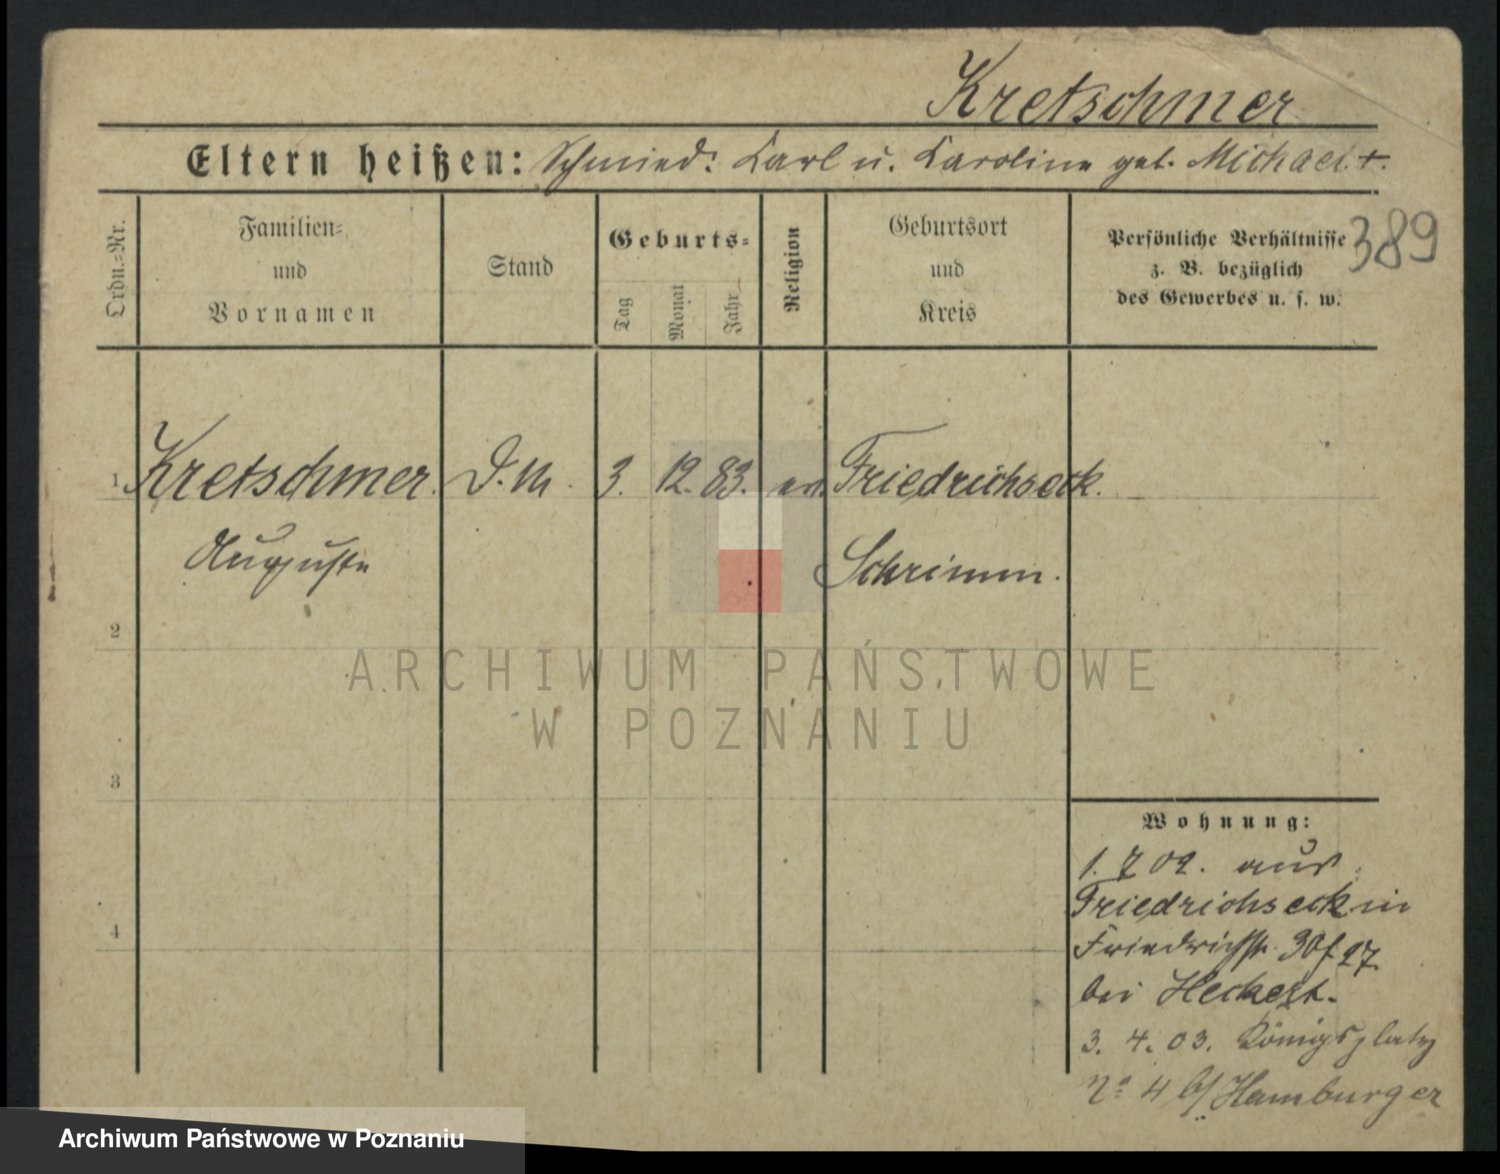 Kretschmer
Eltern heißen: Schmied. Carl u. Caroline geb. Michael +.
389
Ordn.=Nr.
Familien=
und
Vornamen
Stand
Geburts=
Tag
Monat
Jahr
Religion
Geburtsort
und
Kreis
Persönliche Verhältnisse
z. B. bezüglich
des Gewerbes u. s. w.
1 Kretschmer. D. M. 3. 12. 83. ev. Friedrichseck.
Auguste Schrimm.
2
3
4
Wohnung:
1. 7 02. aus
Friedrichseck in
Friedrichstr. 30/27
bei Heckert.
3. 4. 03. Königsplatz
No 4 b/ Hamburger
ARCHIWUM PAŃSTWOWE
W POZNANIU
Archiwum Państwowe w Poznaniu